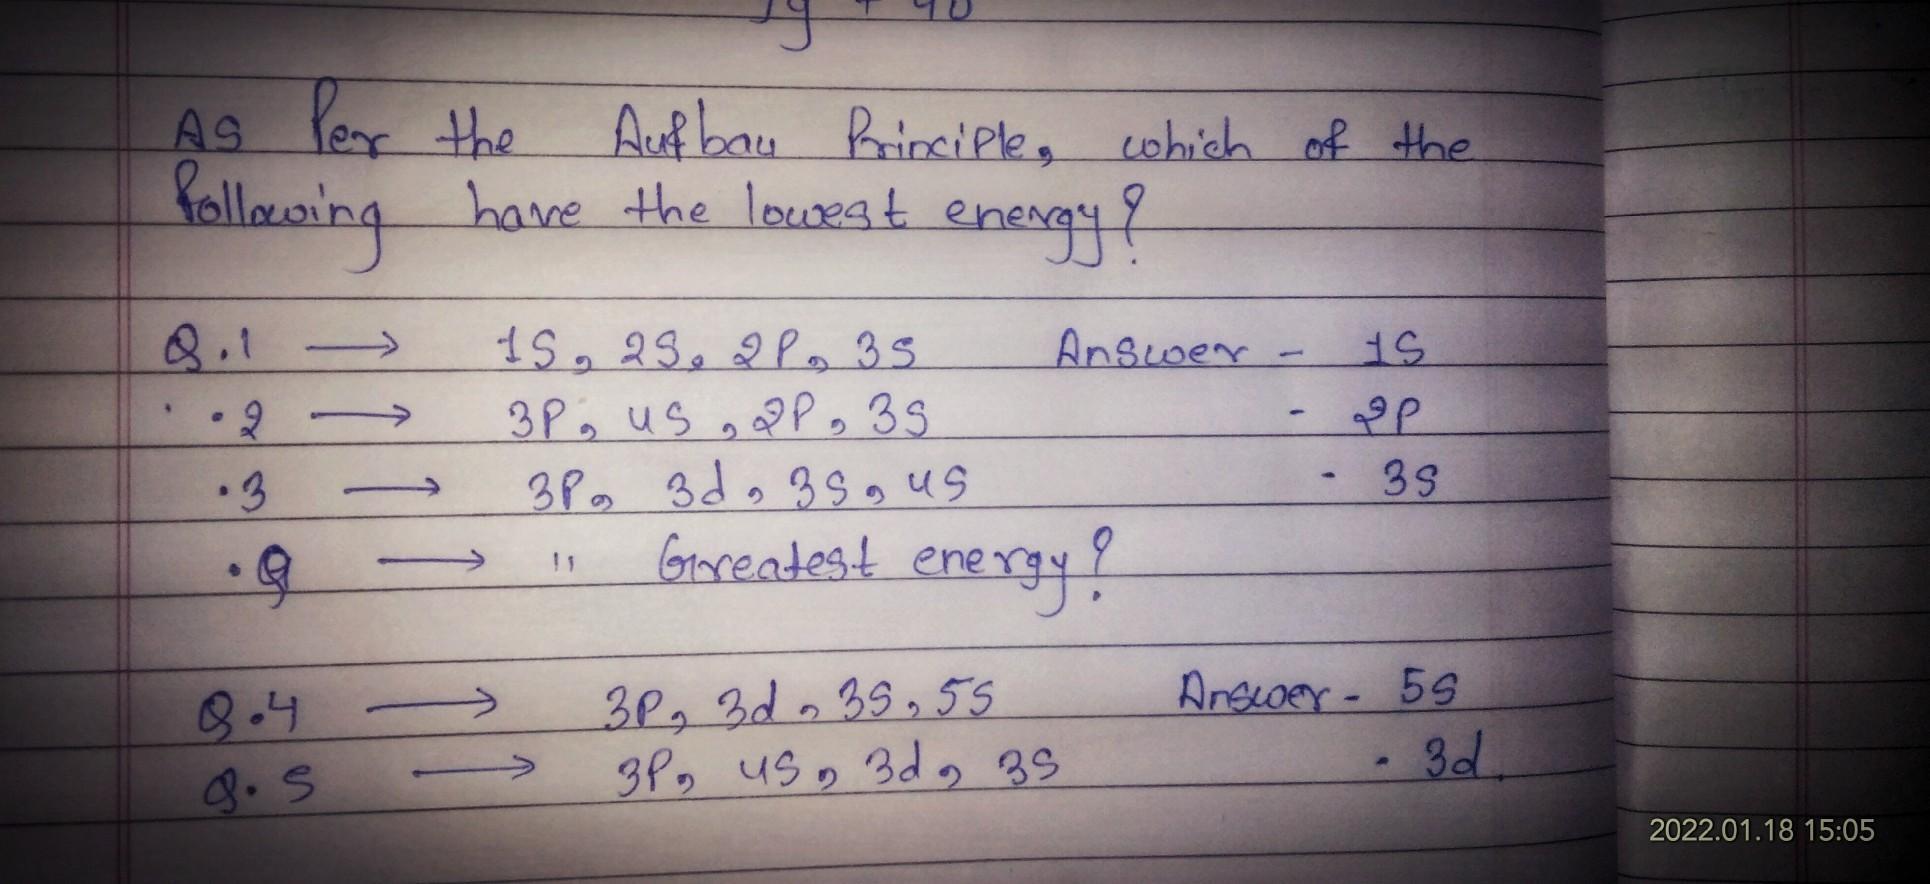 As Per the Aufbau Principle, which of the
following have the lowest energy?
Q.1 → 1S, 2S, 2P, 3S Answer - 1S
.2 → 3P, 4S, 2P, 3S - 2P
.3 → 3P, 3d, 3S, 4S - 3S
.Q → " Greatest energy?
Q.4 → 3P, 3d, 3S, 5S Answer - 5S
Q.5 → 3P, 4S, 3d, 3S - 3d.
2022.01.18 15:05